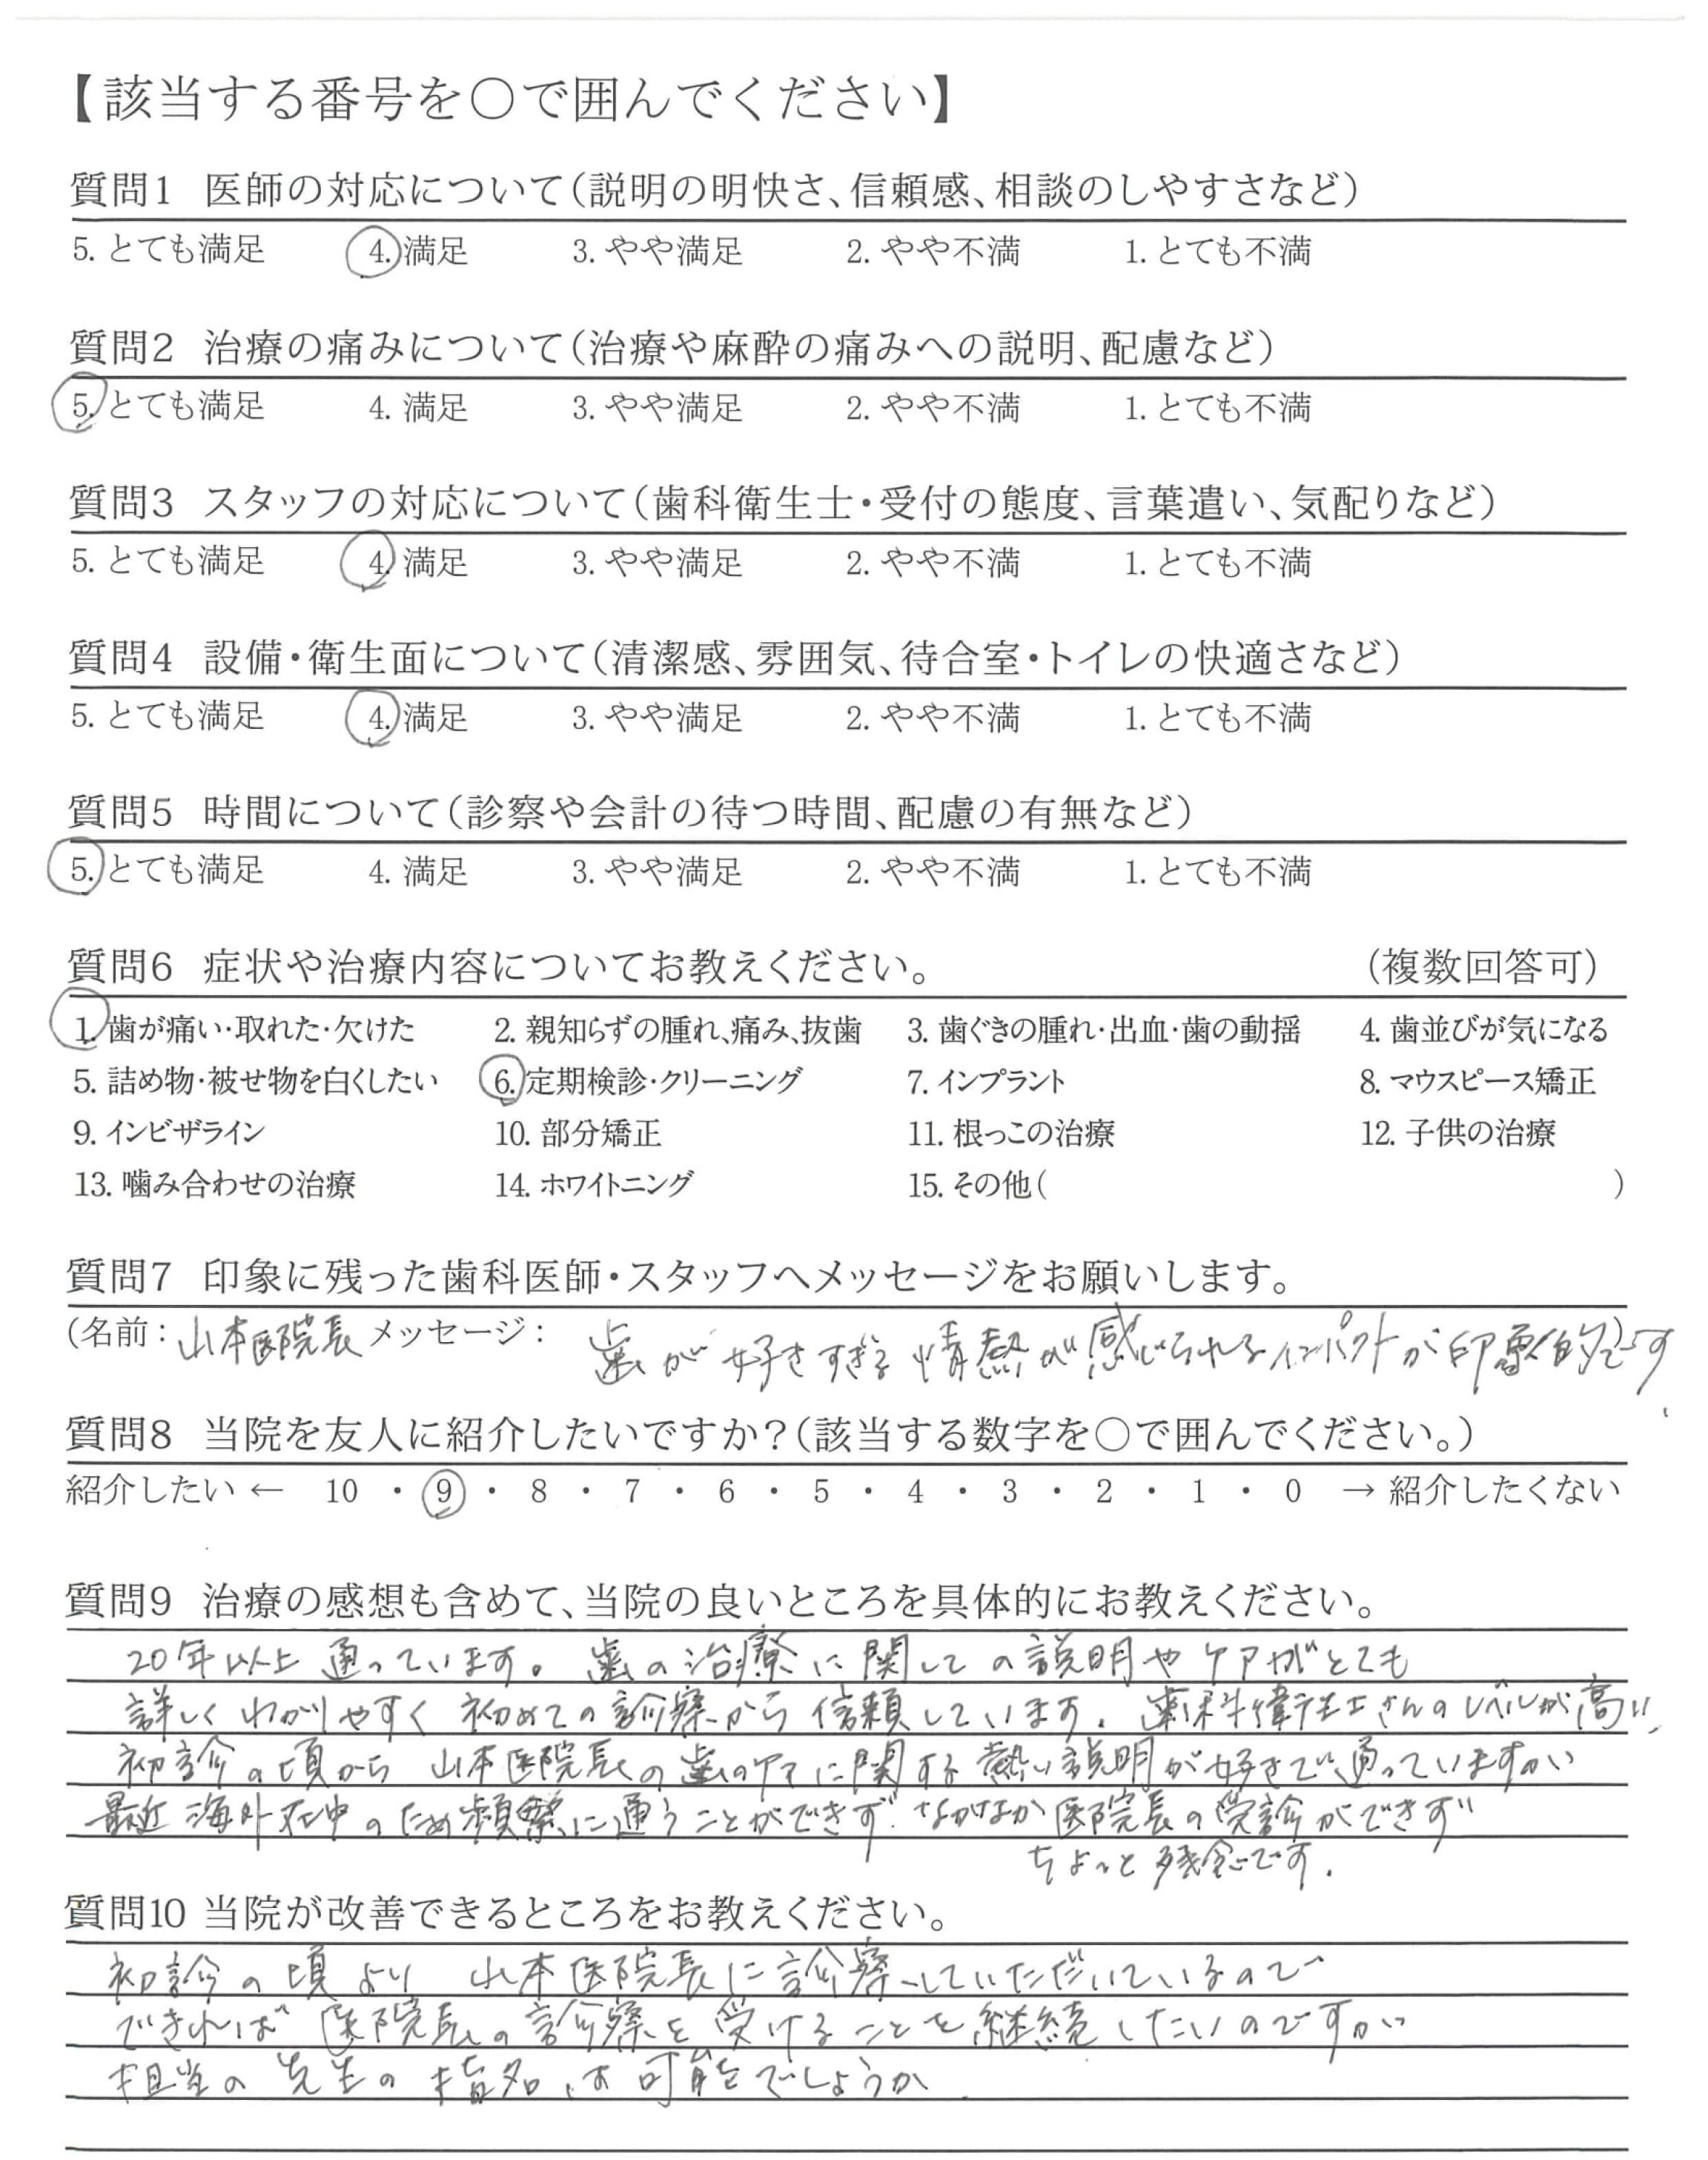 【該当する番号を○で囲んでください】
質問1 医師の対応について(説明の明快さ、信頼感、相談のしやすさなど)
5. とても満足 4. 満足 3. やや満足 2. やや不満 1. とても不満
質問2 治療の痛みについて(治療や麻酔の痛みへの説明、配慮など)
5. とても満足 4. 満足 3. やや満足 2. やや不満 1. とても不満
質問3 スタッフの対応について(歯科衛生士・受付の態度、言葉遣い、気配りなど)
5. とても満足 4. 満足 3. やや満足 2. やや不満 1. とても不満
質問4 設備・衛生面について(清潔感、雰囲気、待合室・トイレの快適さなど)
5. とても満足 4. 満足 3. やや満足 2. やや不満 1. とても不満
質問5 時間について(診察や会計の待つ時間、配慮の有無など)
5. とても満足 4. 満足 3. やや満足 2. やや不満 1. とても不満
質問6 症状や治療内容についてお教えください。 (複数回答可)
1. 歯が痛い・取れた・欠けた 2. 親知らずの腫れ、痛み、抜歯 3. 歯ぐきの腫れ・出血・歯の動揺 4. 歯並びが気になる
5. 詰め物・被せ物を白くしたい 6. 定期検診・クリーニング 7. インプラント 8. マウスピース矯正
9. インビザライン 10. 部分矯正 11. 根っこの治療 12. 子供の治療
13. 噛み合わせの治療 14. ホワイトニング 15. その他( )
質問7 印象に残った歯科医師・スタッフへメッセージをお願いします。
(名前：山本医院長 メッセージ： 歯が好きすぎる情熱が感じられるインパクトが印象的です)
質問8 当院を友人に紹介したいですか？(該当する数字を○で囲んでください。)
紹介したい ← 10 ・ 9 ・ 8 ・ 7 ・ 6 ・ 5 ・ 4 ・ 3 ・ 2 ・ 1 ・ 0 → 紹介したくない
質問9 治療の感想も含めて、当院の良いところを具体的にお教えください。
20年以上通っています。歯の治療に関しての説明やケアがとても
詳しくわかりやすく初めての診察から信頼しています。歯科衛生士さんのレベルが高い
初診の頃から山本医院長の歯のケアに関する熱い説明が好きで通っていますが
最近海外在中のため頻繁に通うことができず なかなか医院長の受診ができず
ちょっと残念です。
質問10 当院が改善できるところをお教えください。
初診の頃より 山本医院長に診察していただいているので
できれば医院長の診察を受けることを継続したいのですが
担当の先生の指名は可能でしょうか